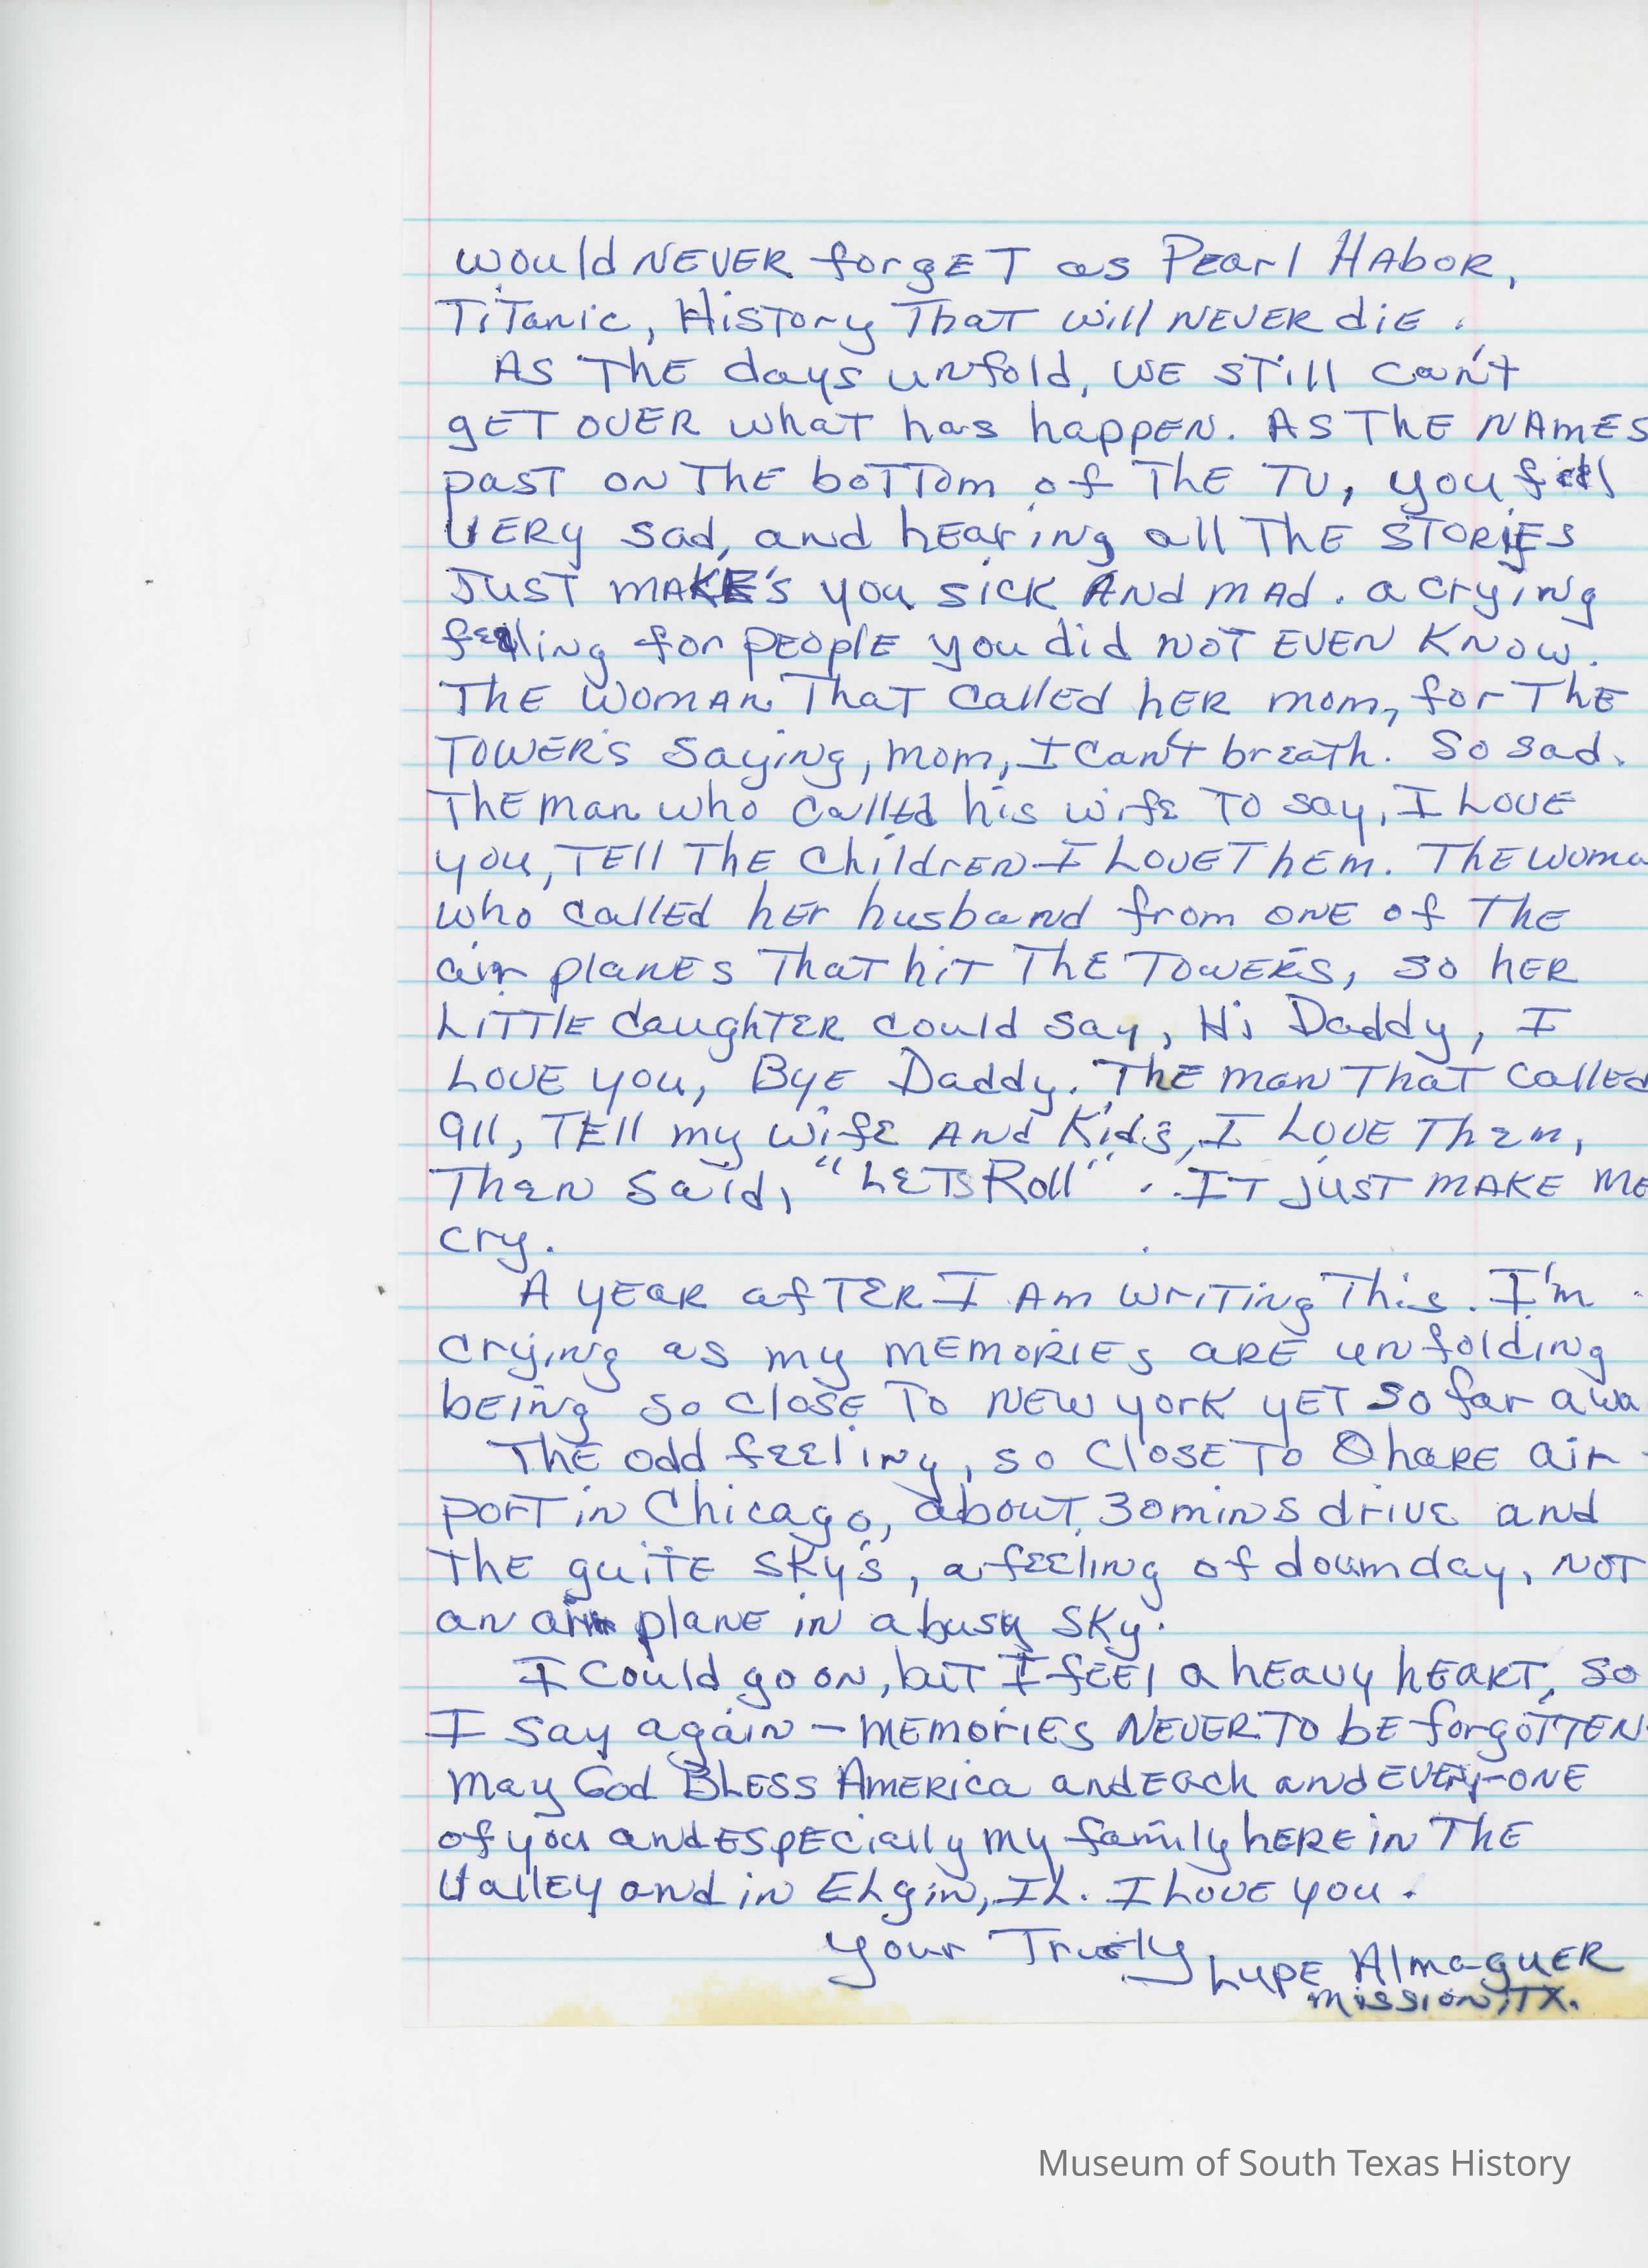 would NEVER forgET as Pearl HAboR,
TiTanic, HisTory ThaT will NEVER diE.
AS ThE days unfold, WE sTill can't
gET OVER whaT has happEN. AS ThE NAMES
pasT ON ThE boTTom of ThE TV, you feel
VERy sad, and hEaring all ThE STORIES
JusT MAKE'S you sick And mAd. a crying
feeling for pEOplE you did NOT EVEN KNOW.
ThE WOMAN ThaT callEd hER mom, for ThE
TOWER'S saying, mom, I can't breath. So sad.
ThE man who called his wife TO say, I LOVE
you, TEll ThE childrEN I LOVE ThEm. ThE woma
who callEd hEr husband from ONE of ThE
air planES ThaT hiT ThE TOWER'S, so hER
LiTTlE daughTER could say, Hi Daddy, I
LOVE you, ByE Daddy. ThE man ThaT callEd
911, TEll my wifE ANd Kids, I LOVE Them,
Then said, "LETS Roll". IT jusT MAKE ME
cry.
A yEAR afTER I Am wriTing This. I'm
crying as my mEMORIES aRE unfolding
bEing so closE To NEW york yET so far awa
ThE odd feeling, so closE To OhaRE air-
porT in Chicago, abouT 30 mins drive and
ThE quiTE sky's, a feeling of doumday, NOT
an air planE in a busy sky.
I could go on, buT I fEEl a hEavy hEART, so
I say again - mEmoriES NEVER TO bE forgoTTEN.
May God BLESS AmERica and Each and EVERy-ONE
of you and ESpEcially my family hERE in ThE
VallEy and in ELgin, IL. I LOVE you.
your Truely LupE AlmaguER
Mission, TX.
Museum of South Texas History